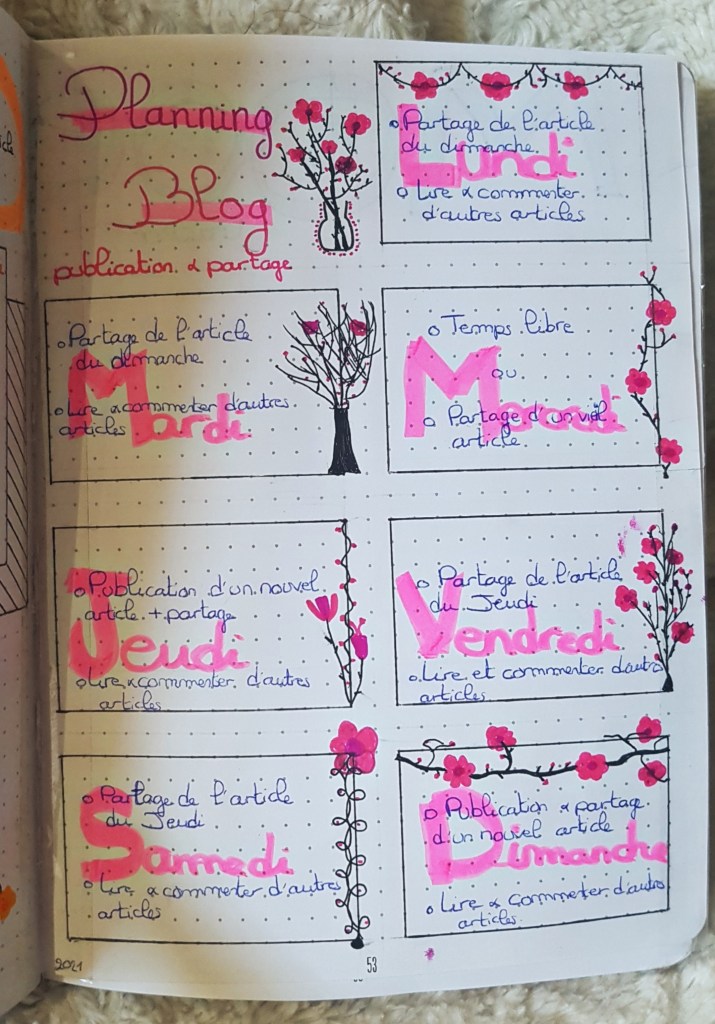 Planning
Blog
publication & partage
Lundi
o Partage de l'article
du dimanche.
o Lire & commenter
d'autres articles
Mardi
o Partage de l'article
du dimanche
o Lire & commenter d'autres
articles
Mercredi
o Temps libre
ou
o Partage d'un vieil
article.
Jeudi
o Publication d'un nouvel
article + partage
o Lire & commenter d'autres
articles
Vendredi
o Partage de l'article
du Jeudi
o Lire et commenter d'autre
articles
Samedi
o Partage de l'article
du Jeudi
o Lire & commenter d'autres
articles
Dimanche
o Publication & partage
d'un nouvel article
o Lire & commenter d'autres
articles.
2021
53